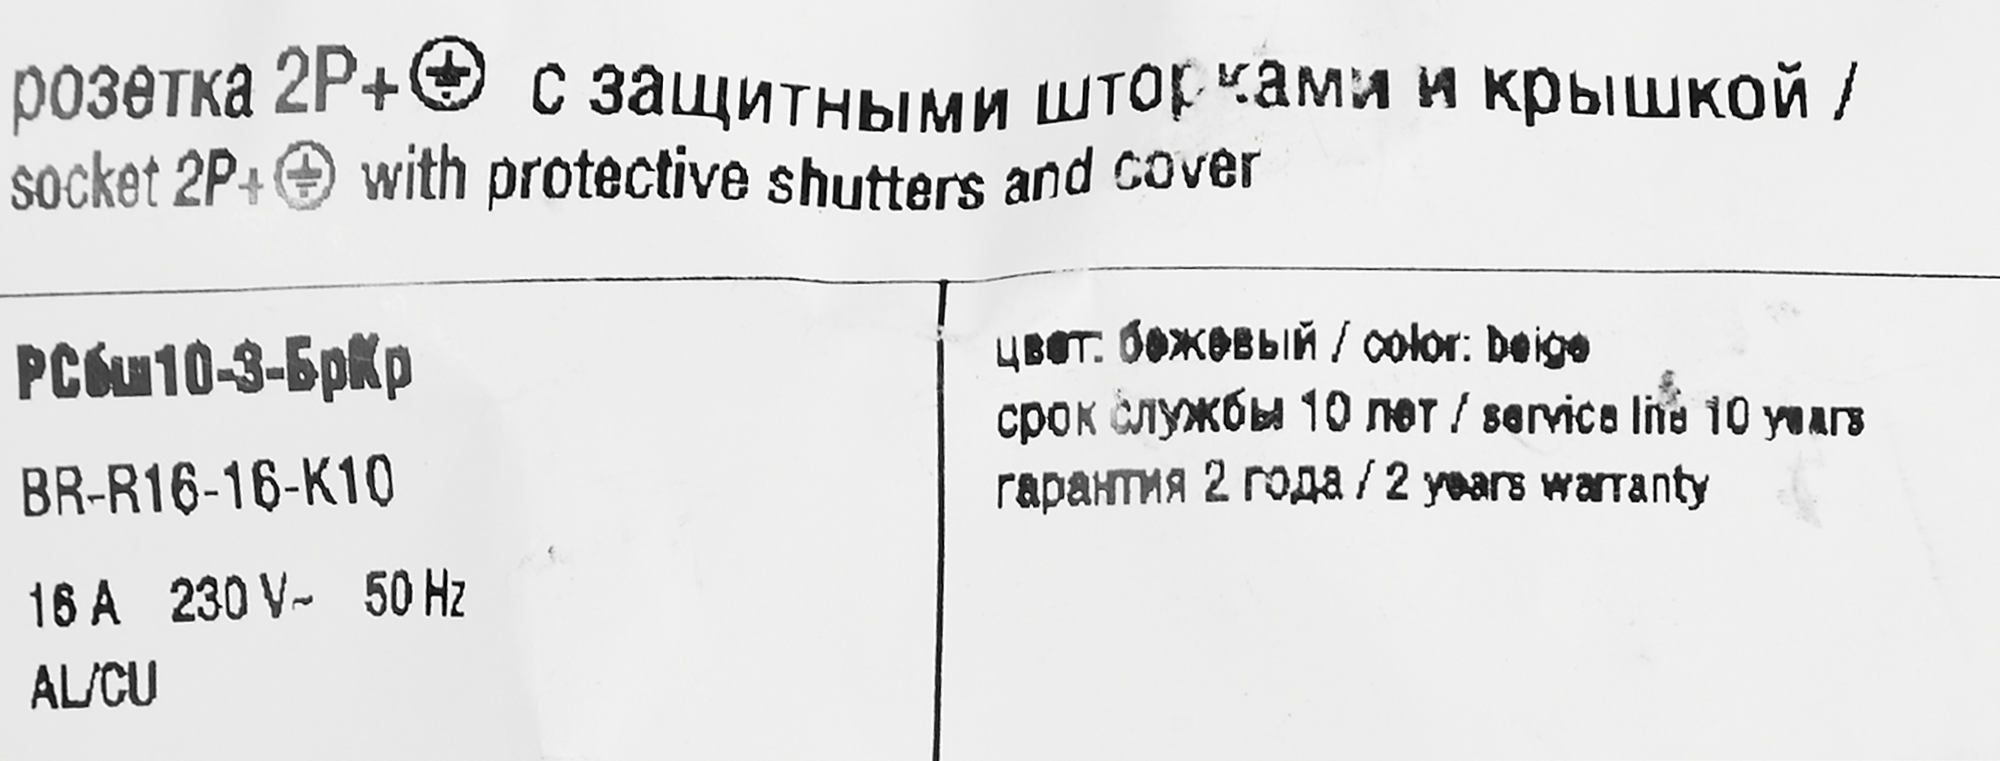 розетка 2P+⏚ с защитными шторками и крышкой /
socket 2P+⏚ with protective shutters and cover
РСбш10-3-БрКр
BR-R16-16-K10
16 A 230 V~ 50 Hz
AL/CU
цвет: бежевый / color: beige
срок службы 10 лет / service line 10 years
гарантия 2 года / 2 years warranty